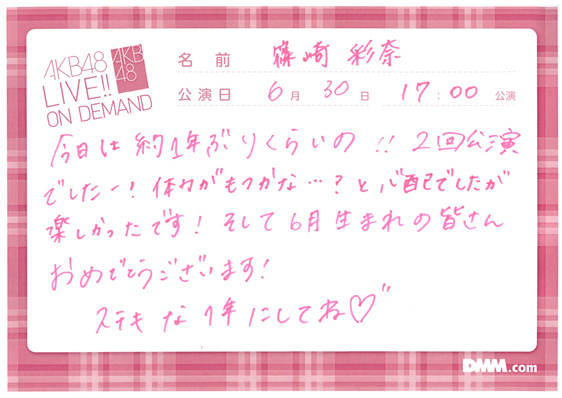 AKB48
LIVE!!
ON DEMAND
AKB
48
名前 篠崎 彩奈
公演日 6月 30日 17:00 公演
今日は約1年ぶりくらいの!! 2回公演
でしたー! 体力がもつかな…?と心配でしたが
楽しかったです! そして6月生まれの皆さん
おめでとうございます!
ステキな1年にしてね♡"
DMM.com